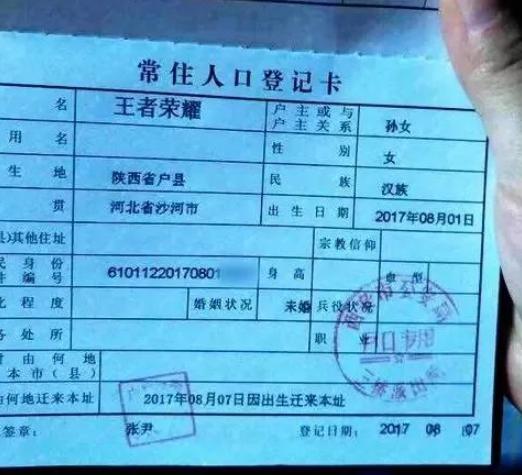 常住人口登记卡
名 王者荣耀 户主或与户主关系 孙女
用名 性别 女
生地 陕西省户县 民族 汉族
贯 河北省沙河市 出生日期 2017年08月01日
县)其他住址 宗教信仰
民身份件编号 61011220170801 身高 血型
化程度 婚姻状况 未婚 兵役状况
务处所 职业
由何地本市(县)
何地迁来本址 2017年08月07日因出生迁来本址
签章: 张尹 登记日期: 2017 08 07
西安市公安局
户口专用
三桥派出所